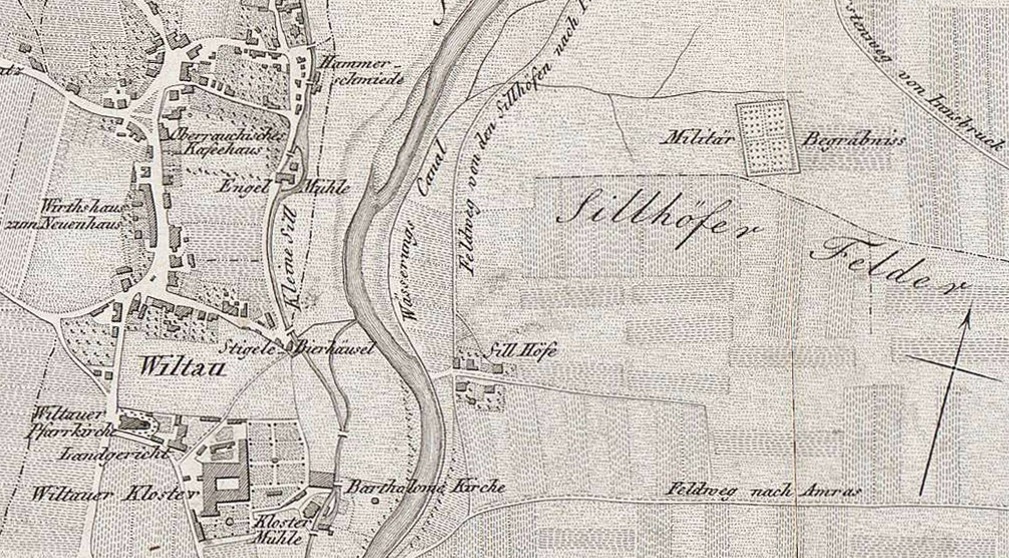 Hammer-
schmiede
Oberrauchisches
Kafeehaus
Engel Mühle
Wirthshaus
zum Neuenhaus
Kleine Sill
Wässerungs Canal
Feldweg von den Sillhöfen nach
Militär Begräbniss
von Innsbruck
Sillhöfer Felder
Stigele Bierhäusel
Sill Höfe
Wiltau
Wiltauer
Pfarrkirche
Landgericht
Wiltauer Kloster
Bartholomä Kirche
Kloster
Mühle
Feldweg nach Amras